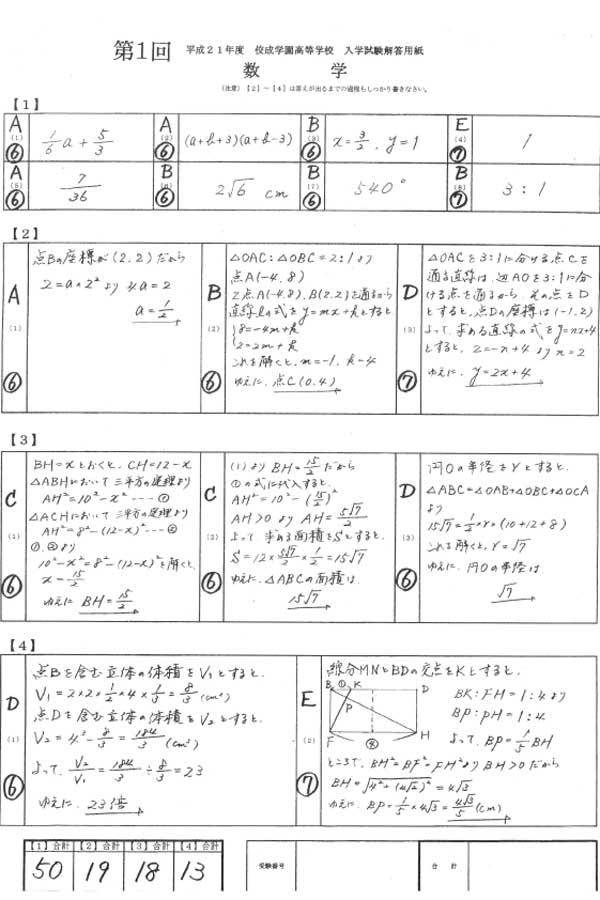 第1回 平成21年度 佼成学園高等学校 入学試験解答用紙
数 学
(注意)【2】~【4】は答えが出るまでの過程もしっかり書きなさい。
【1】
A (1) ⑥ 1/6 a + 5/3
A (2) ⑥ (a+b+3)(a+b-3)
B (3) ⑥ x=3/2, y=1
E (4) ⑦ 1
A (5) ⑥ 7/36
B (6) ⑥ 2√6 cm
B (7) ⑥ 540°
B (8) ⑦ 3:1
【2】
A (1) ⑥
点Bの座標が(2,2)だから
2=a×2² より 4a=2
a=1/2
B (2) ⑥
△OAC:△OBC=2:1より
点A(-4,8)
2点A(-4,8),B(2,2)を通るから
直線ℓの式をy=mx+kとすると
8=-4m+k
2=2m+k
これを解くと,m=-1,k=4
ゆえに,点C(0,4)
D (3) ⑦
△OACを3:1に分ける点Cを
通る直線は,辺AOを3:1に分
ける点を通るから,その点をD
とすると,点Dの座標は(-1,2)
よって,求める直線の式をy=nx+4
とすると,2=-n+4よりn=2
ゆえに,y=2x+4
【3】
C (1) ⑥
BH=xとおくと,CH=12-x
△ABHにおいて三平方の定理より
AH²=10²-x² ---- ①
△ACHにおいて三平方の定理より
AH²=8²-(12-x)² --- ②
①,②より
10²-x²=8²-(12-x)²を解くと,
x=15/2
ゆえに BH=15/2
C (2) ⑥
(1)よりBH=15/2だから
①の式に代入すると,
AH²=10²-(15/2)²
AH>0より AH=5√7/2
よって,求める面積をSとすると,
S=12×5√7/2×1/2=15√7
ゆえに,△ABCの面積は
15√7
D (3) ⑥
円Oの半径をrとすると,
△ABC=△OAB+△OBC+△OCA
より
15√7=1/2×r×(10+12+8)
これを解くと,r=√7
ゆえに,円Oの半径は
√7
【4】
D (1) ⑥
点Bを含む立体の体積をV₁とすると,
V₁=2×2×1/2×4×1/3=8/3(cm³)
点Dを含む立体の体積をV₂とすると,
V₂=4³-8/3=184/3(cm³)
よって,V₂/V₁=184/3÷8/3=23
ゆえに,23倍
E (2) ⑦
線分MNとBDの交点をKとすると,
B ① K D
P
F ④ H
BK:FH=1:4より
BP:PH=1:4
よって,BP=1/5 BH
ところで,BH²=BF²+FH²よりBH>0だから
BH=√4²+(4√2)²=4√3
ゆえに,BP=1/5×4√3=4√3/5(cm)
【1】合計 【2】合計 【3】合計 【4】合計
50 19 18 13
受験番号 合計